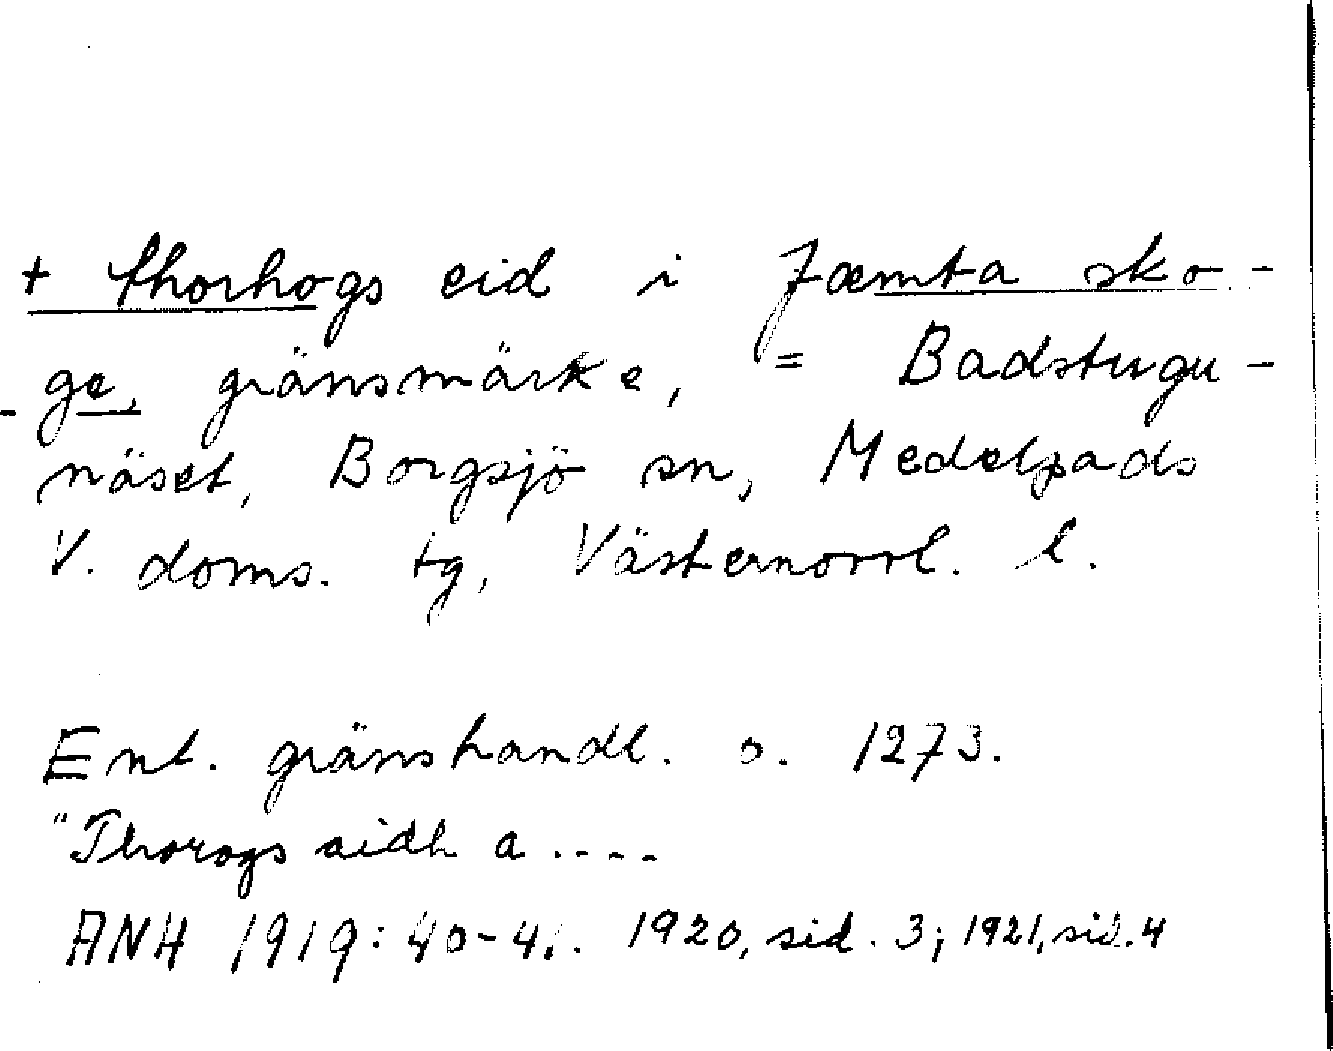 + thorhogs eid i Jæmta sko-
-ge, gränsmärke, = Badstugu-
näset, Borgsjö sn, Medelpads
V. doms. tg, Västernorrl. l.
Enl. gränshandl. o. 1273.
"Thorogs aidh a ....
ANH 1919: 40-41. 1920, sid. 3; 1921, sid. 4